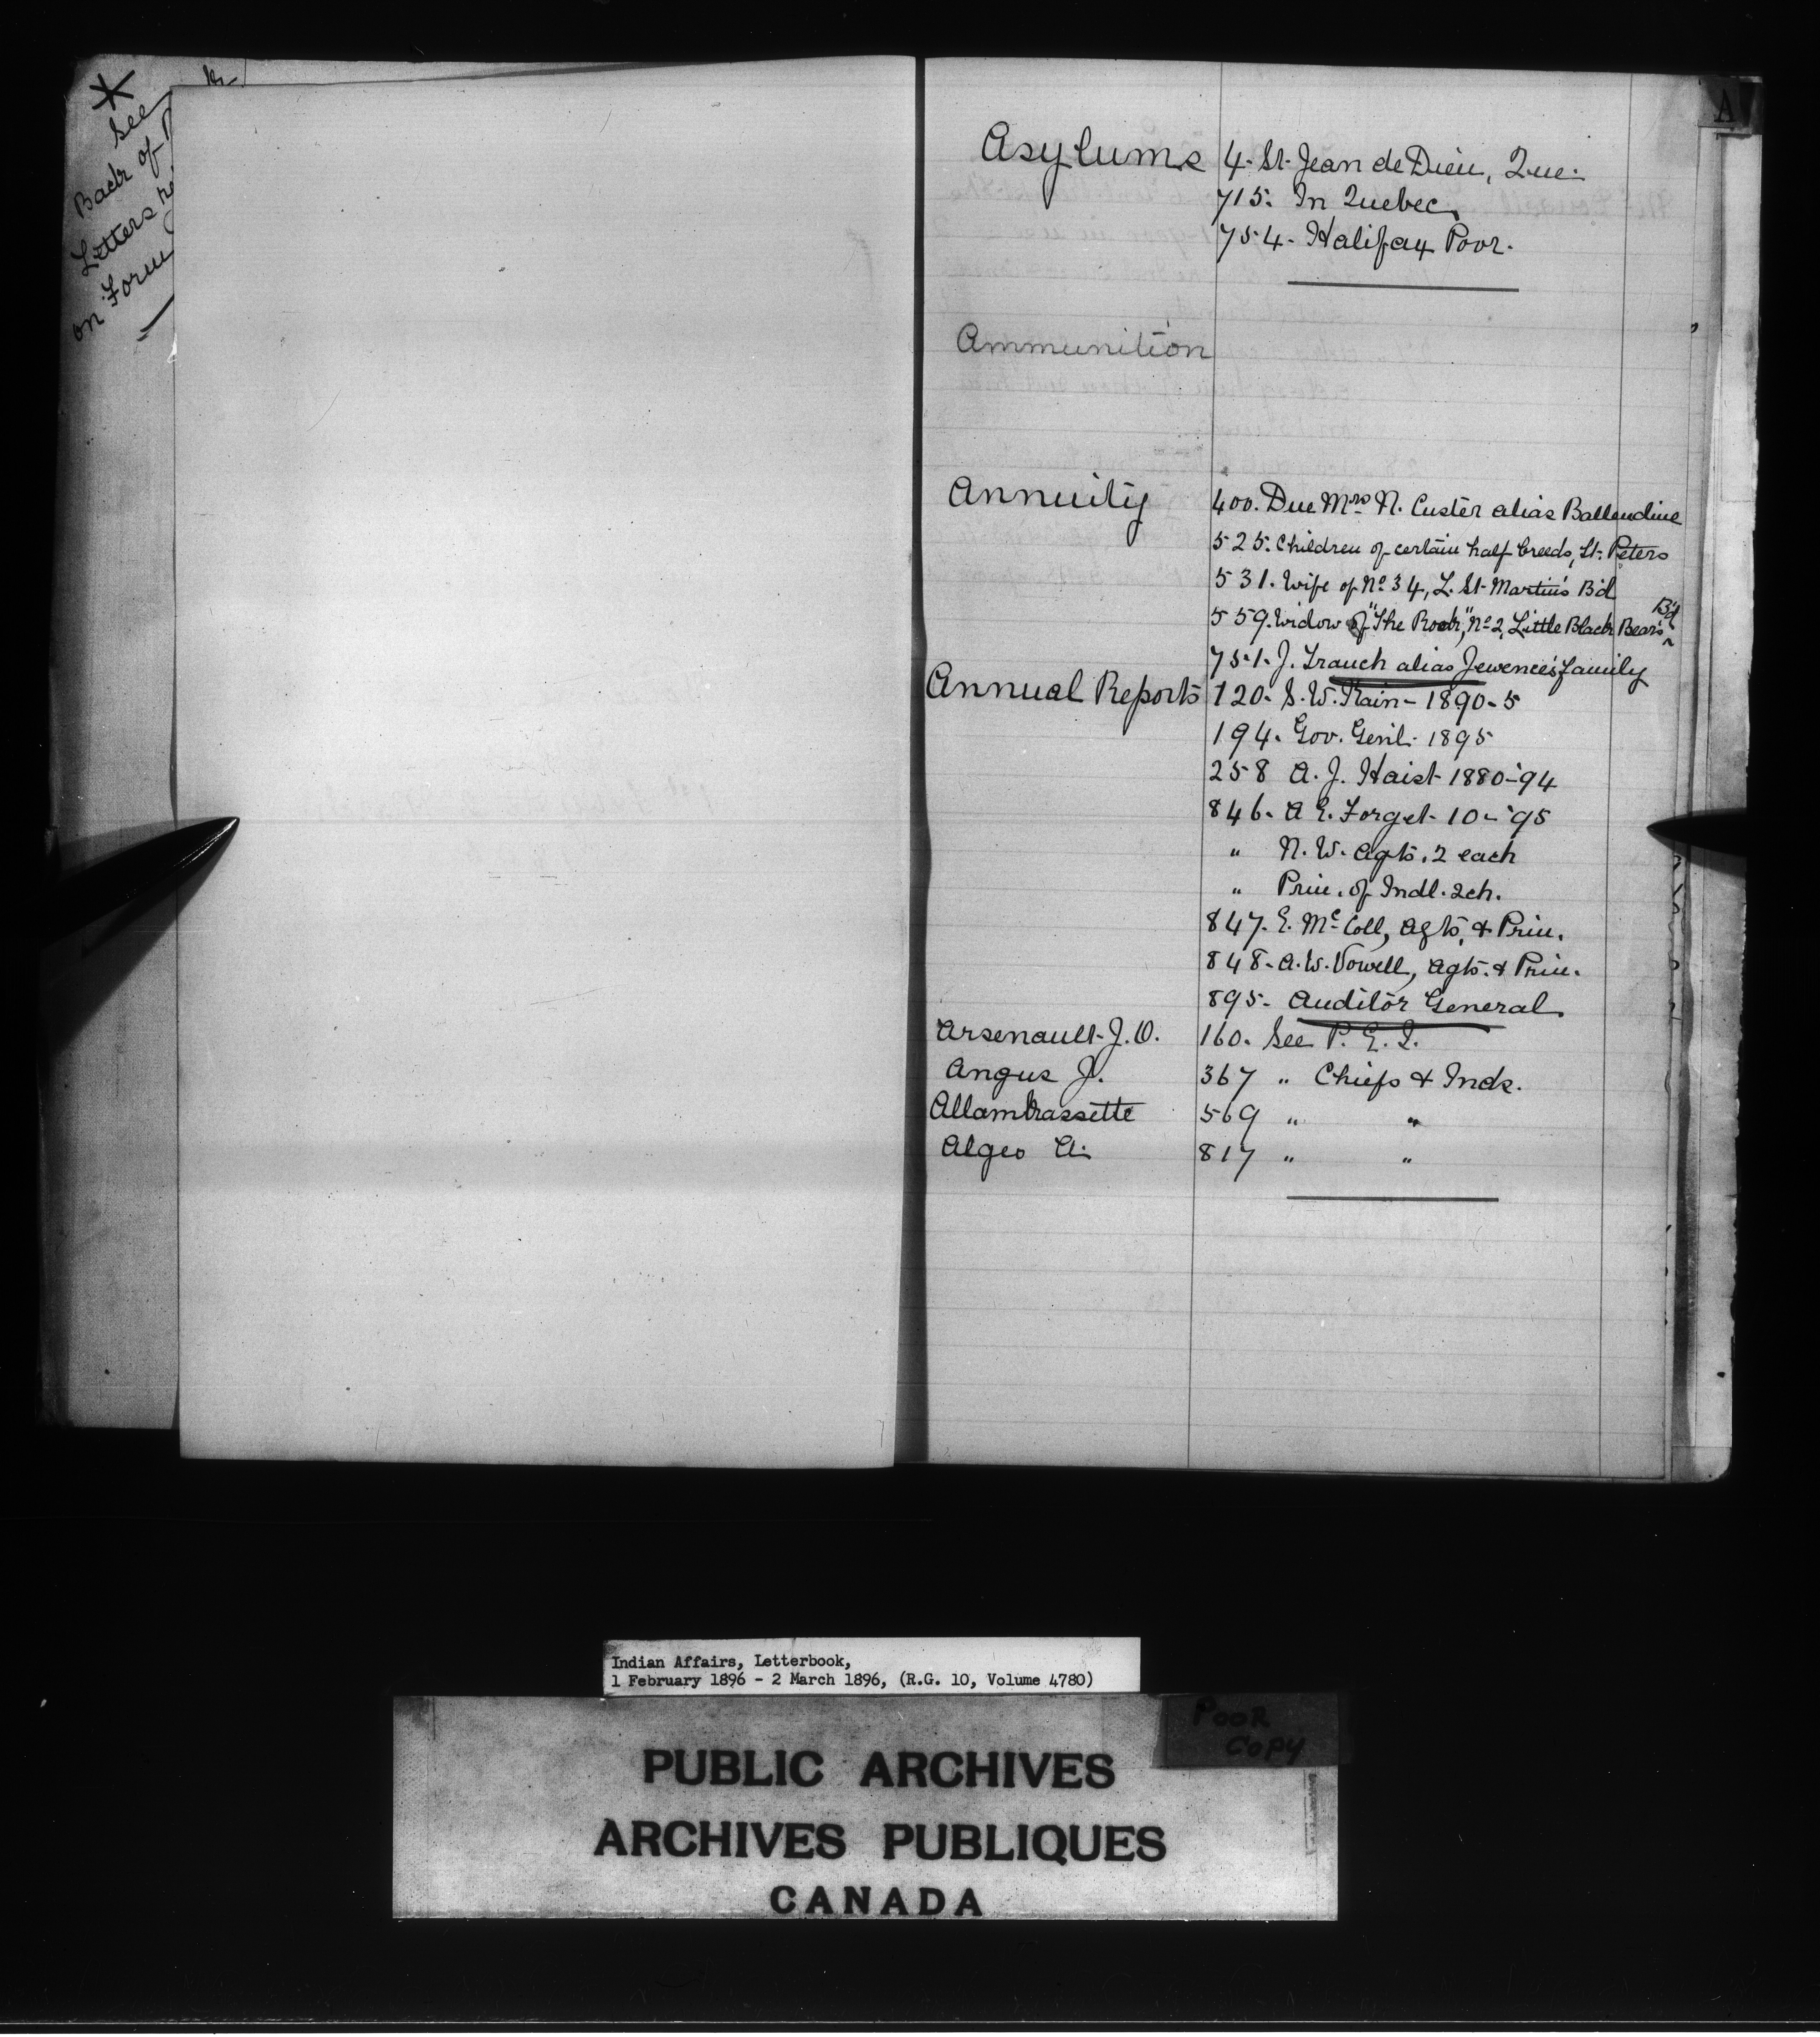 *
See
Back of
Letters
on Form
A
Asylums 4. St. Jean de Dieu, Que.
715. In Quebec.
754. Halifax Poor.
Ammunition
Annuity 400. Due Mrs. N. Custer alias Ballendine
525. Children of certain half breeds, St. Peters
531. Wife of No. 34, L. St. Martin's Bd
559. Widow of "The Rock," No. 2, Little Black Bear's Bd
751. J. Trauch alias Jewence's family
Annual Reports 120. S. W. Kain - 1890-5
194. Gov. Genl. 1895
258 A. J. Haist 1880-'94
846. A E. Forget - 10 - '95
" N. W. Agts. 2 each
" Prin. of Indl. 2ch.
847. E. McColl, Agts, & Prin.
848. A. W. Vowell, Agts. & Prin.
895. Auditor General.
Arsenault J. O. 160. See P. E. I.
Angus J. 367 " Chiefs & Inds.
Allambrassette 569 " "
Algeo A. 817 " "
Indian Affairs, Letterbook,
1 February 1896 - 2 March 1896, (R.G. 10, Volume 4780)
POOR
COPY
PUBLIC ARCHIVES
ARCHIVES PUBLIQUES
CANADA